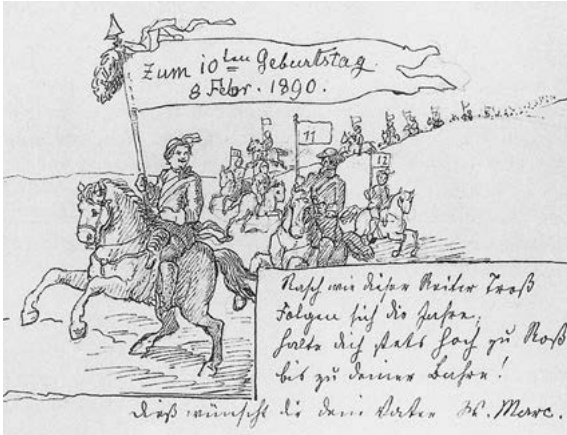 Zum 10ten Geburtstag.
8 Febr. 1890.
11
12
Rasch wie dieser Reiter Troß
Folgen sich die Jahre;
Halte dich stets hoch zu Roß
bis zu deiner Bahre!
Dieß wünscht dir dein Vater W. Marc.